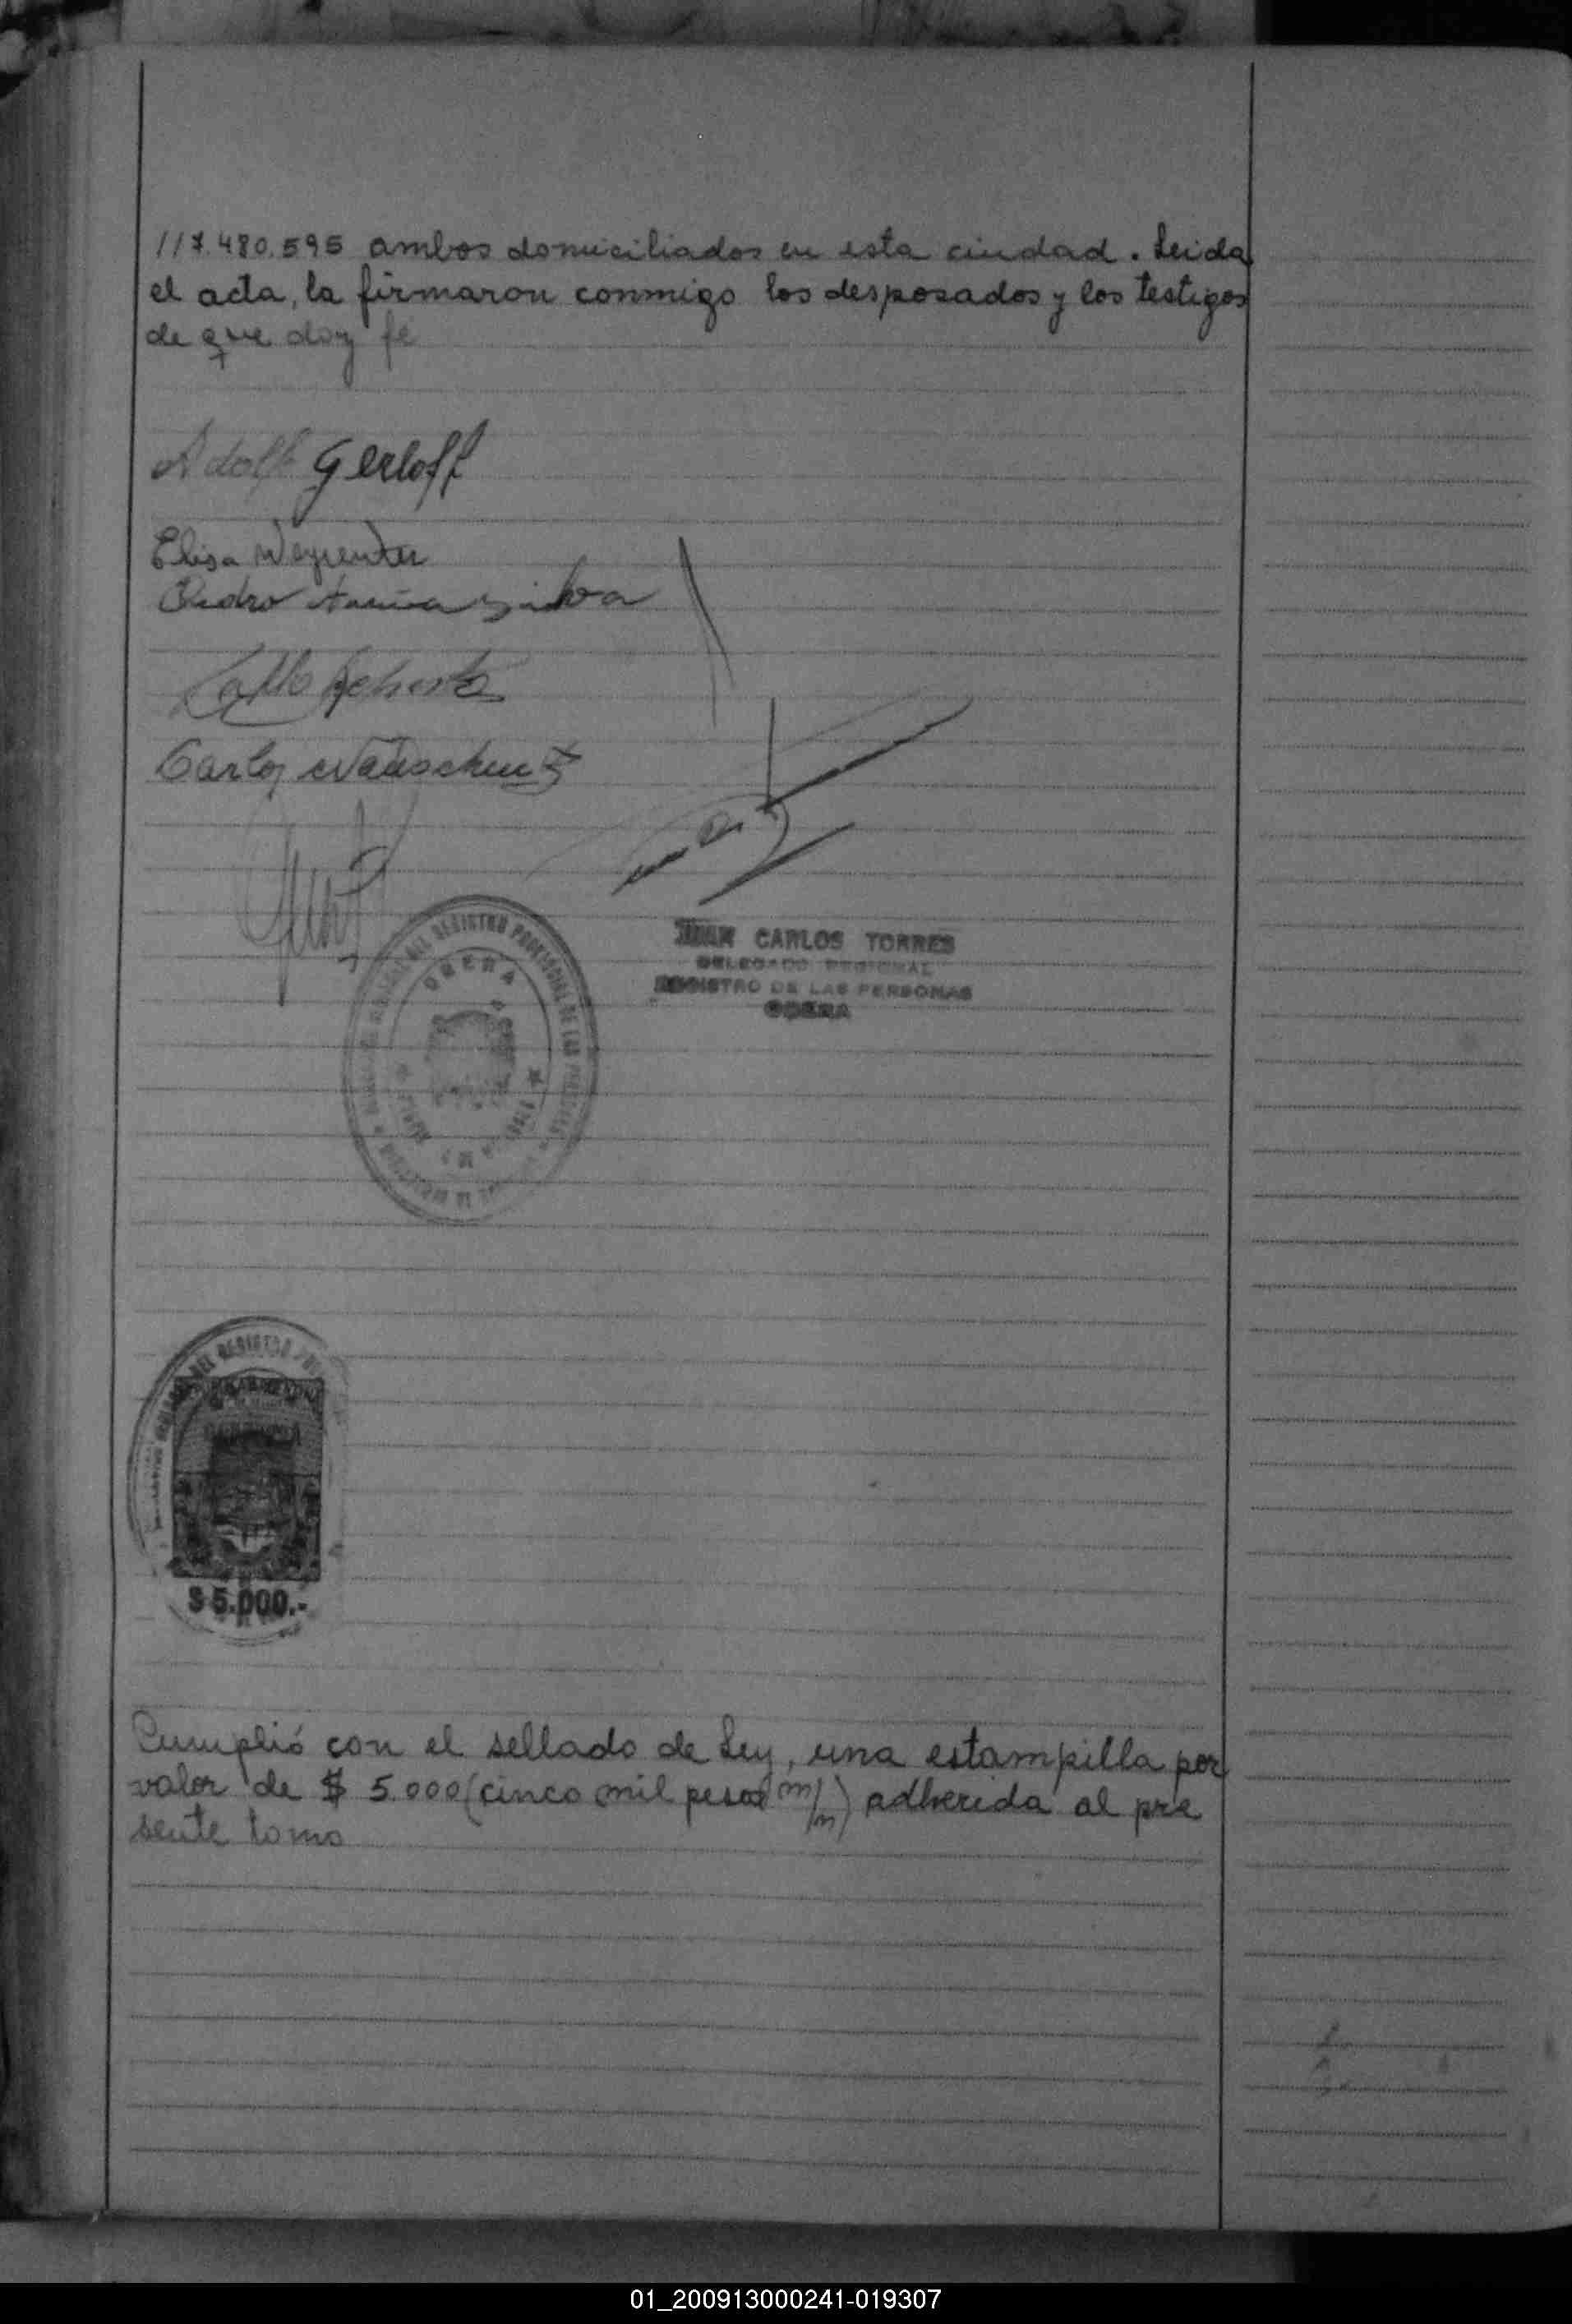 117.480.595 ambos domiciliados en esta ciudad. Leida
el acta, la firmaron conmigo los desposados y los testigos
de que doy fe
Adolf Gerloff
Elisa
Pedro
Carlos
JUAN CARLOS TORRES
DELEGADO REGIONAL
REGISTRO DE LAS PERSONAS
OBERA
DEL REGISTRO PROVINCIAL DE LAS PERSONAS
OBERA
DEL REGISTRO
$ 5.000.-
Cumplió con el sellado de Ley, una estampilla por
valor de $ 5.000 (cinco mil pesos m/n) adherida al pre
sente tomo
01_200913000241-019307